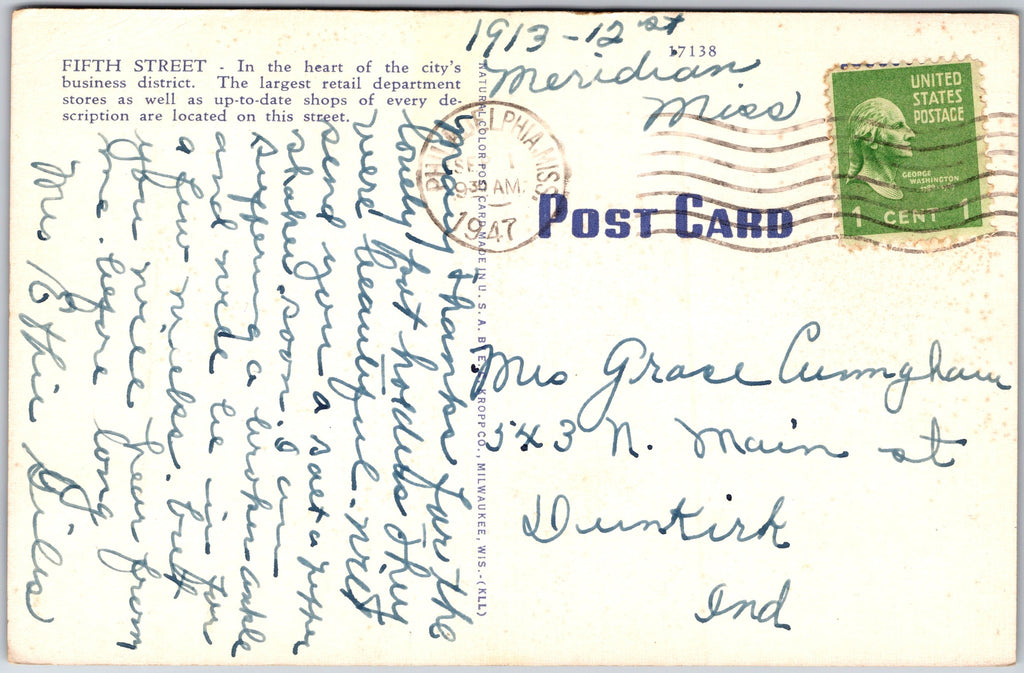 FIFTH STREET - In the heart of the city's
business district. The largest retail department
stores as well as up-to-date shops of every de-
scription are located on this street.
1913 - 12 st
Meridian
Miss
17138
UNITED
STATES
POSTAGE
GEORGE
WASHINGTON
1 CENT 1
PHILADELPHIA MISS
SEP 1
930 AM
1947
POST CARD
NATURAL COLOR POST CARD MADE IN U. S. A. BY E. C. KROPP CO., MILWAUKEE, WIS.-(KLL)
Many thanks for the
lovely pot holders they
were beautiful. will
send you a salt & pepper
shaker soon. I am
suffering a broken ankle
and will be in for
a few weeks. but
you will hear from
me before long
Mrs Giles
Mrs Grace Cunngham
543 N. Main st
Dunkirk
Ind